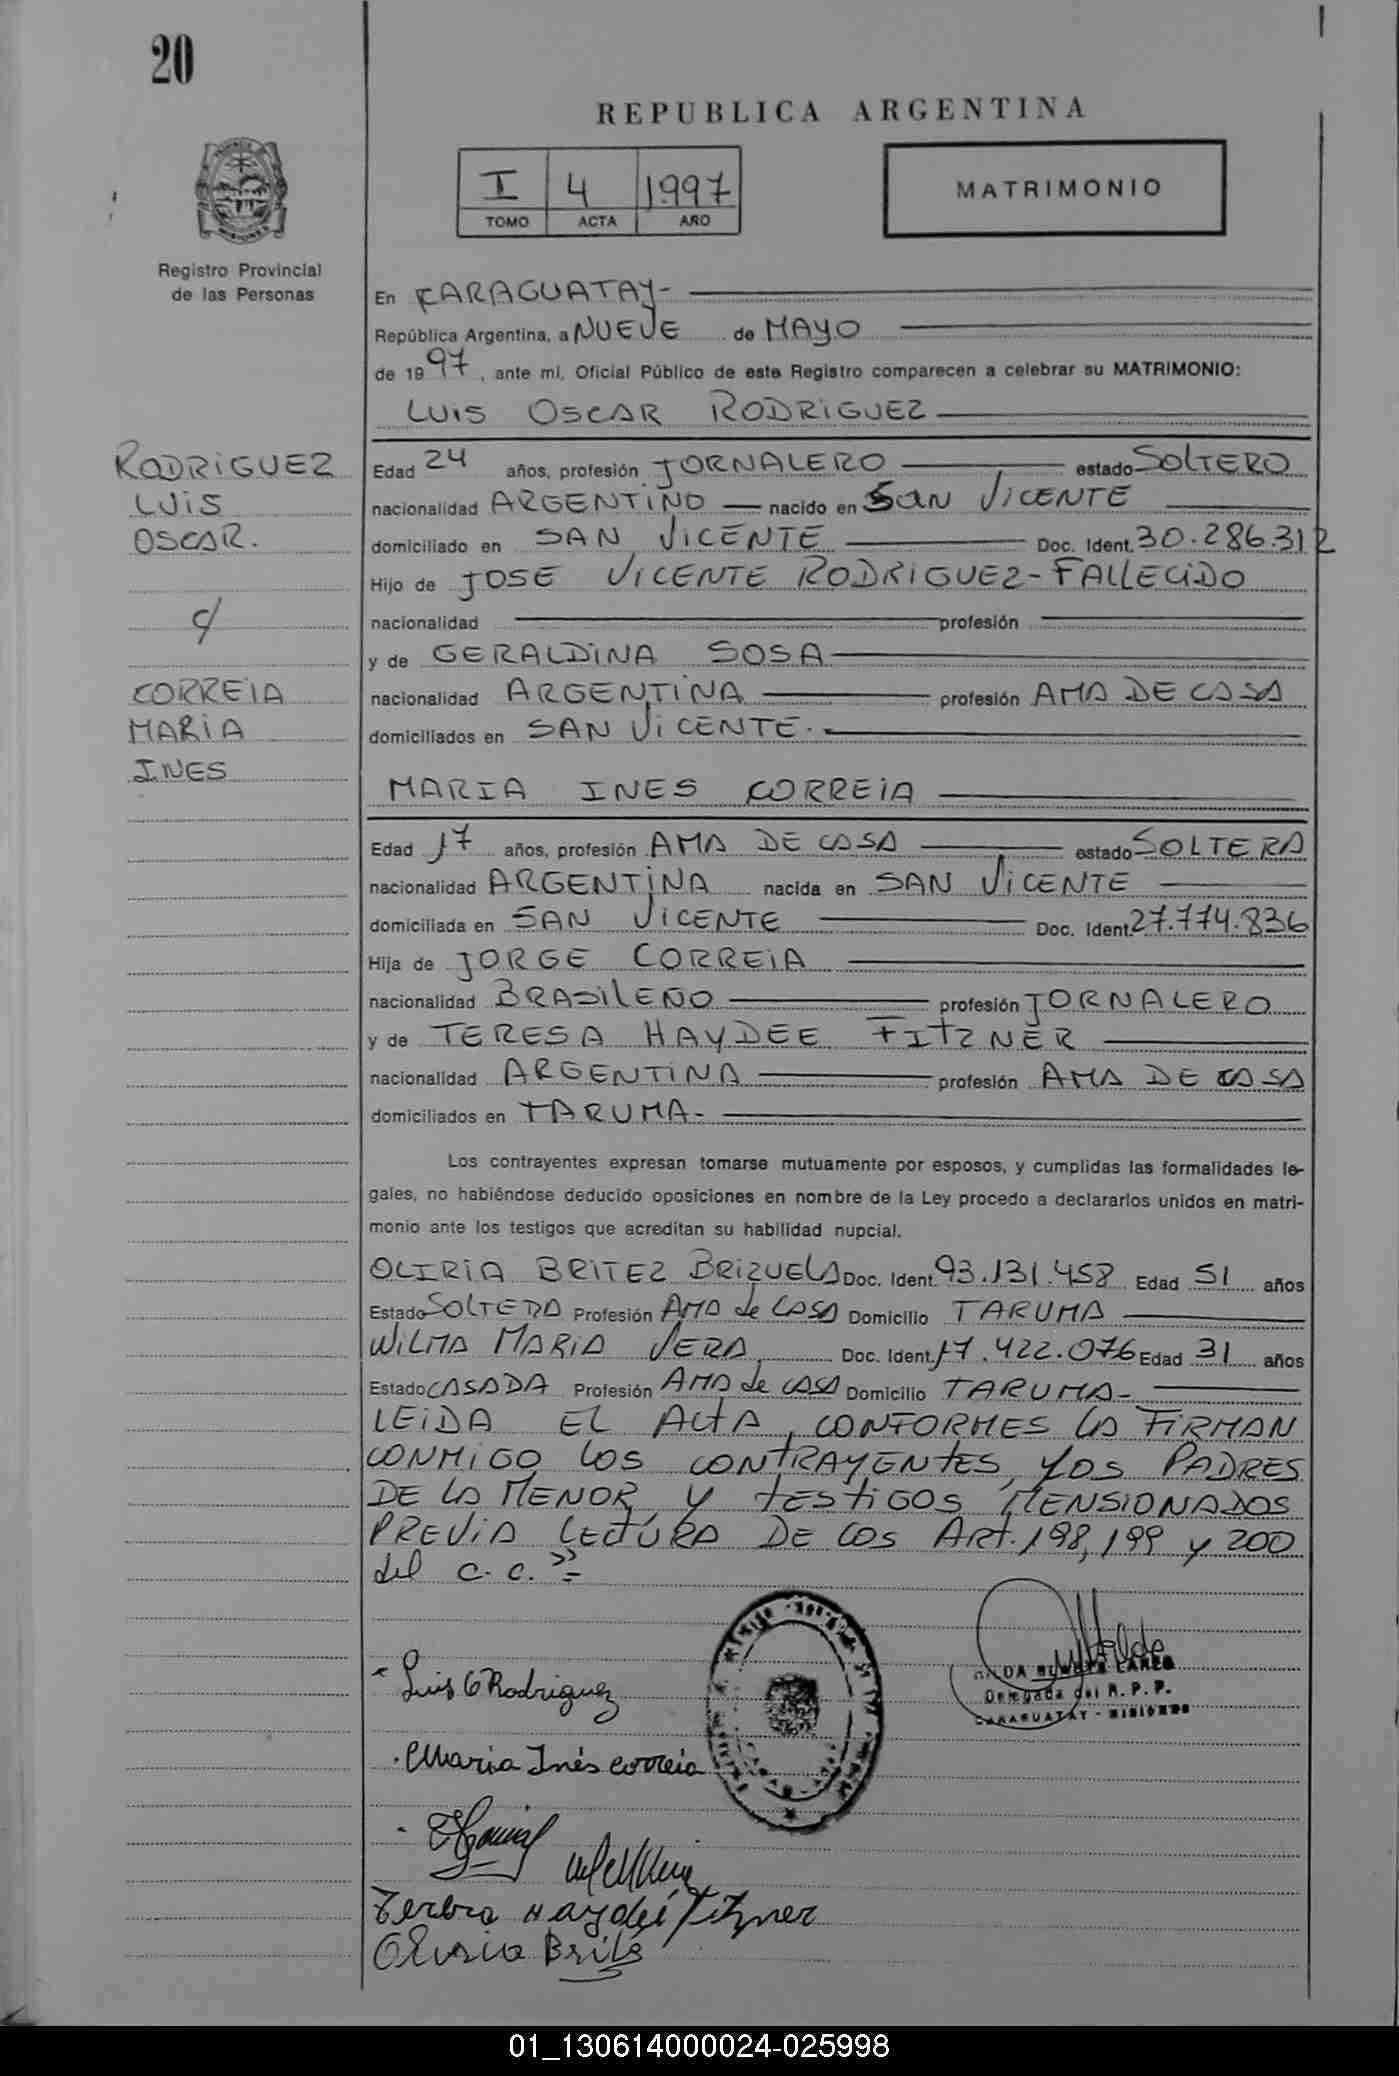 20
REPUBLICA ARGENTINA
I 4 1.997
TOMO ACTA AÑO
MATRIMONIO
Registro Provincial
de las Personas
En CARAGUATAY-
República Argentina, a NUEVE de MAYO
de 1997, ante mí, Oficial Público de este Registro comparecen a celebrar su MATRIMONIO:
LUIS OSCAR RODRIGUEZ
RODRIGUEZ
LUIS
OSCAR.
c/
CORREIA
MARIA
INES
Edad 24 años, profesión JORNALERO estado SOLTERO
nacionalidad ARGENTINO nacido en SAN VICENTE
domiciliado en SAN VICENTE Doc. Ident. 30.286.312
Hijo de JOSE VICENTE RODRIGUEZ-FALLECIDO
nacionalidad profesión
y de GERALDINA SOSA
nacionalidad ARGENTINA profesión AMA DE CASA
domiciliados en SAN VICENTE.
MARIA INES CORREIA
Edad 17 años, profesión AMA DE CASA estado SOLTERA
nacionalidad ARGENTINA nacida en SAN VICENTE
domiciliada en SAN VICENTE Doc. Ident. 27.774.836
Hija de JORGE CORREIA
nacionalidad BRASILEÑO profesión JORNALERO
y de TERESA HAYDEE FITZNER
nacionalidad ARGENTINA profesión AMA DE CASA
domiciliados en TARUMA-
Los contrayentes expresan tomarse mutuamente por esposos, y cumplidas las formalidades le-
gales, no habiéndose deducido oposiciones en nombre de la Ley procedo a declararlos unidos en matri-
monio ante los testigos que acreditan su habilidad nupcial.
OLIRIA BRITEZ BRIZUELA Doc. Ident. 93.131.458 Edad 51 años
Estado SOLTERA Profesión AMA de CASA Domicilio TARUMA
WILMA MARIA VERA Doc. Ident. 17.422.076 Edad 31 años
Estado CASADA Profesión AMA de CASA Domicilio TARUMA-
LEIDA EL ACTA, CONFORMES LA FIRMAN
CONMIGO LOS CONTRAYENTES, LOS PADRES
DE LA MENOR Y TESTIGOS MENSIONADOS
PREVIA LECTURA DE LOS ART. 198, 199 y 200
del C.C."=
Delegada del R.P.P.
CARAGUATAY - MISIONES
Luis O Rodriguez
Maria Inés correia
Haydeé Fitzner
01_130614000024-025998